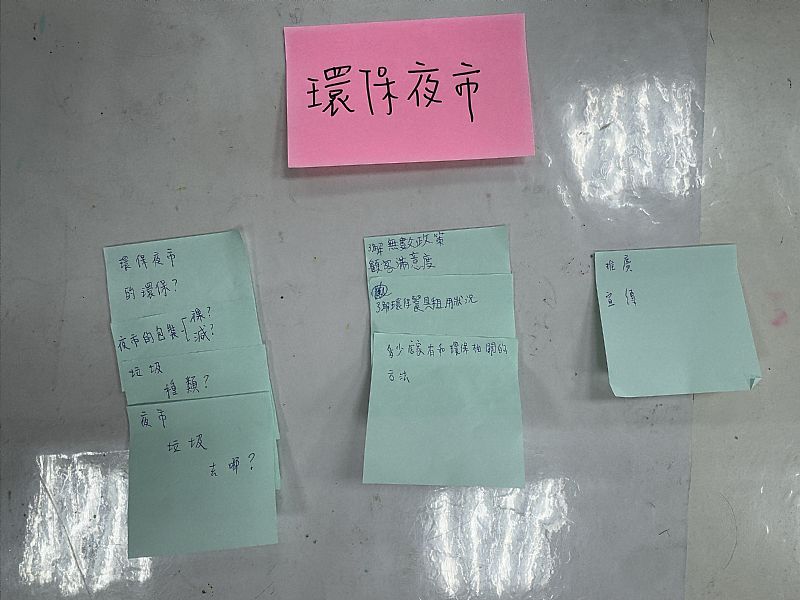 環保夜市
環保夜市
的環保？
夜市的包裝
裸？
減？
垃圾
種類？
夜市
垃圾
去哪？
政策
顧客滿意度
了解環保餐具租用狀況
多少店家有和環保相關的
方法
推廣
宣傳